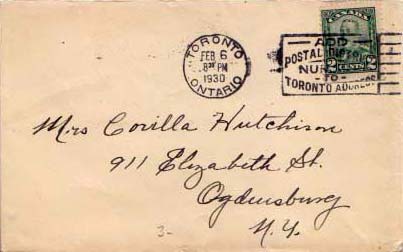 TORONTO
FEB 6
PM
1930
ONTARIO
CANADA
2 CENTS 2
ADD
POSTAL
TO
TORONTO
Mrs Corilla Hutchison
911 Elizabeth St.
Ogdensburg
N.Y.
3-